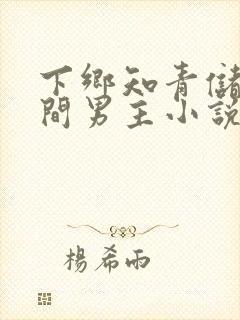 下鄉知青儲
間男主小說
楊希雨